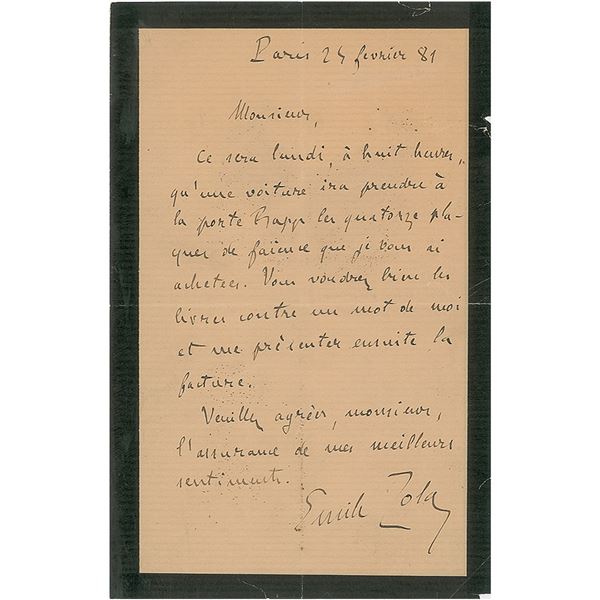 Paris 24 fevrier 81
Monsieur,
Ce sera lundi, à huit heures,
qu'une voiture ira prendre à
la porte Rapp les quatorze pla-
ques de faïence que je vous ai
achetées. Vous voudrez bien les
livrer contre un mot de moi
et me présenter ensuite la
facture.
Veuillez agréer, monsieur,
l'assurance de mes meilleurs
sentiments.
Emile Zola